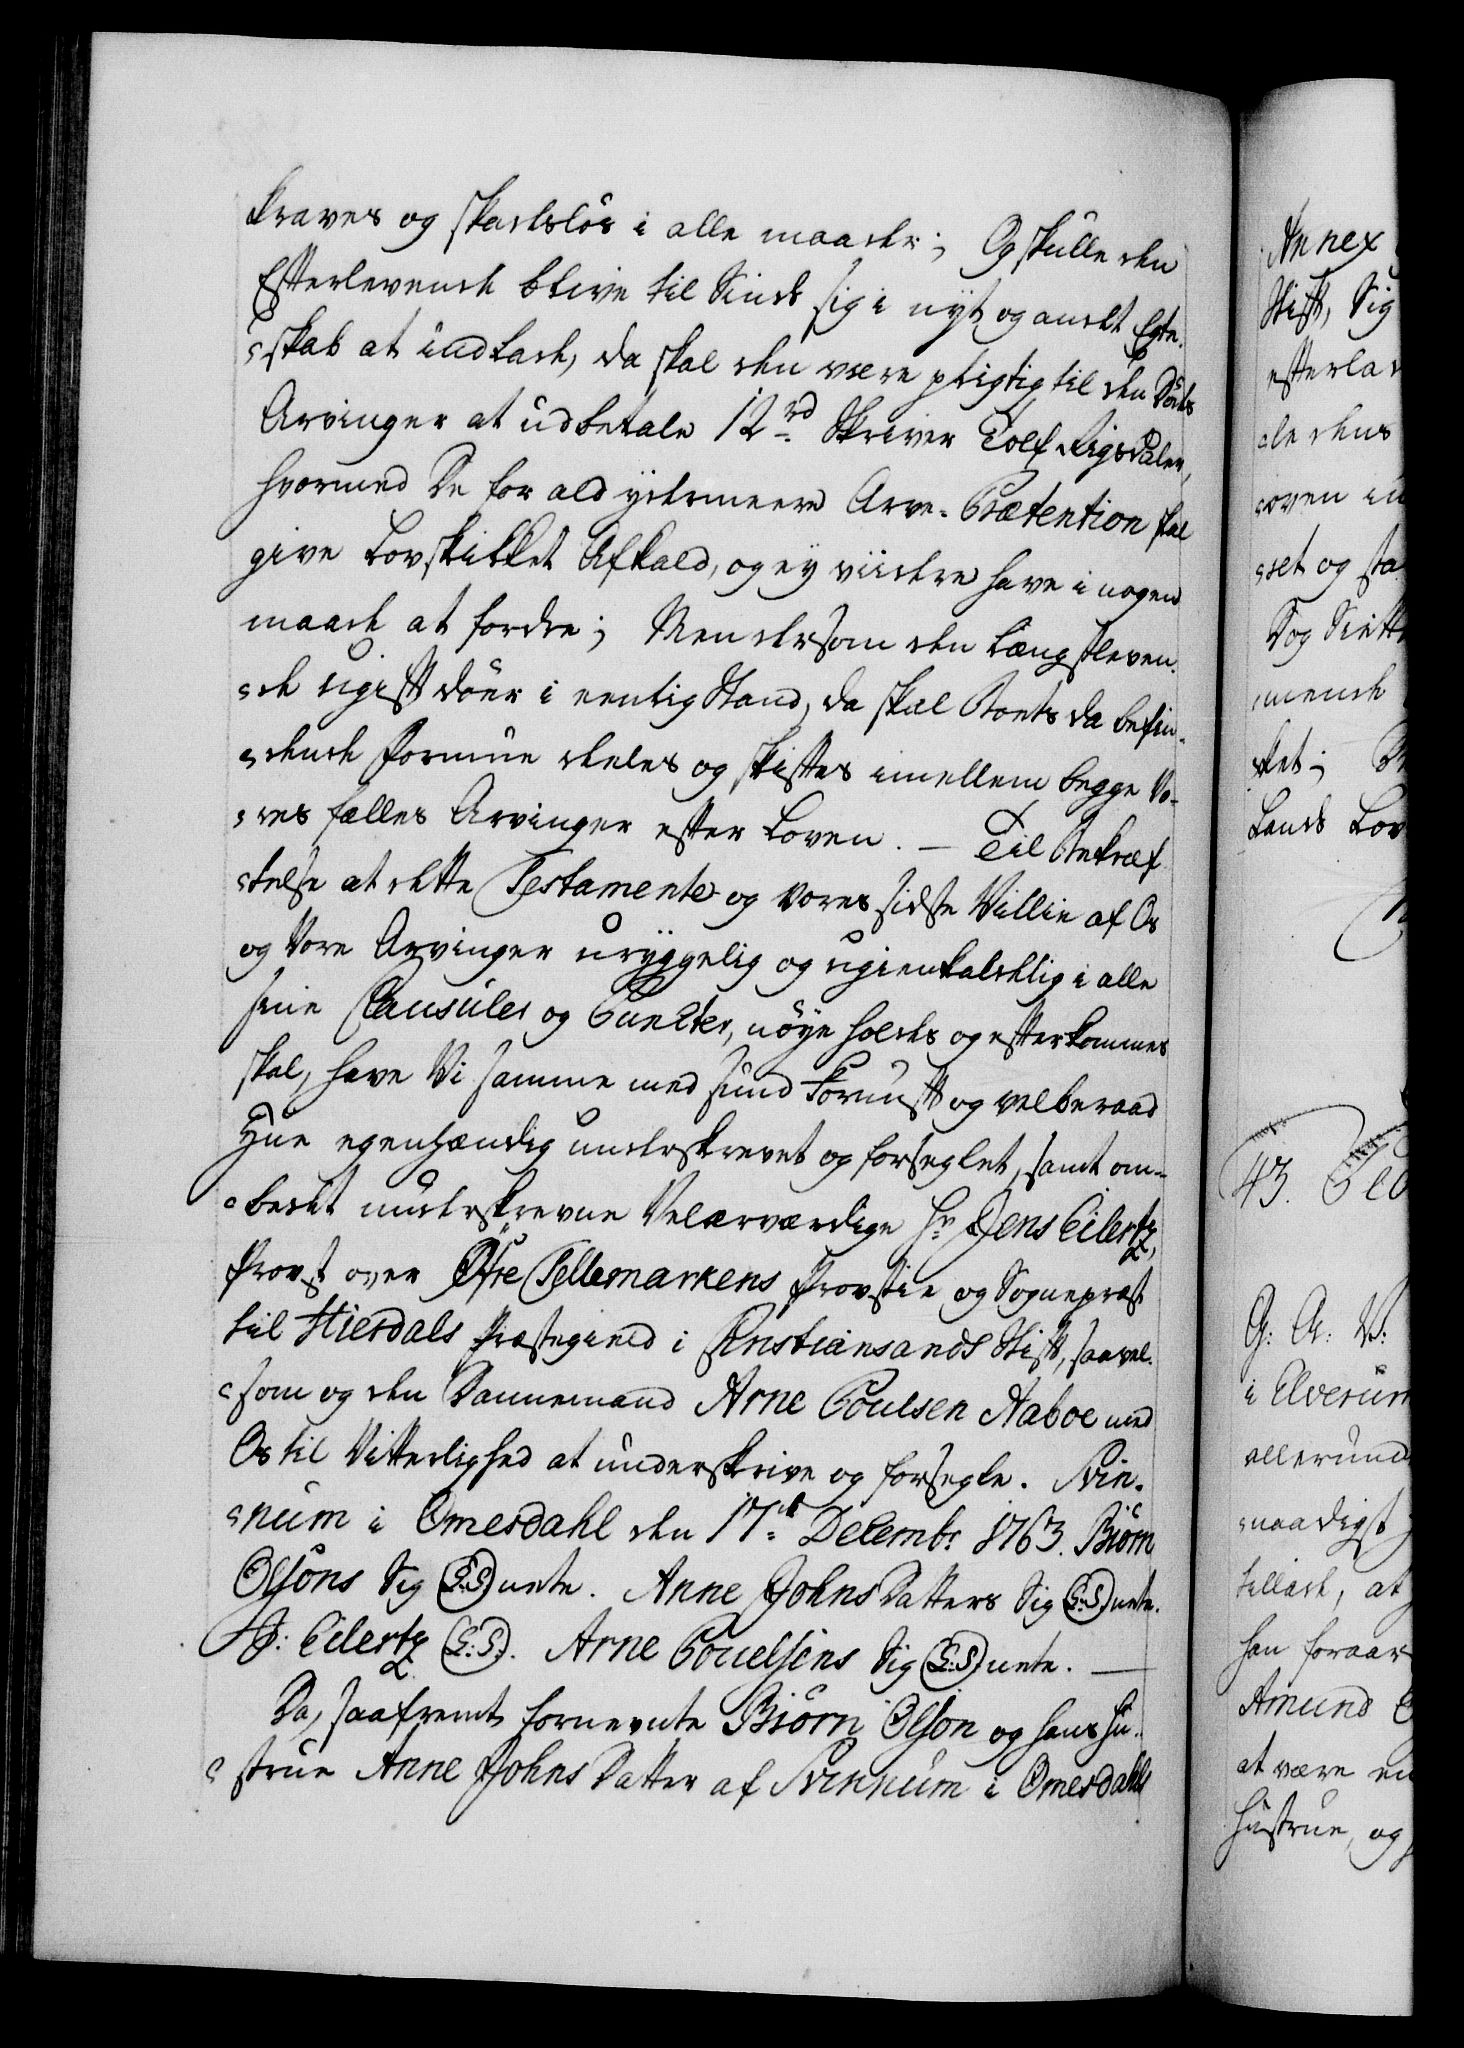 kræves og skadesløs i alle maader; Og skulle den
Efterlevende blive til Sinds sig i nyt og andet Egte-
skab at indlade, da skal den være pligtig til den Dødes
Arvinger at udbetale 12 rd Skriver Tolf Rigsdaler,
hvormed De for ald ydermeere Arve-Prætention skal
give Lovskikket Afkald, og ey viidere have i nogen
maade at fordre; Men dersom den længstleven-
de ugift døer i eenlig Stand, da skal Boets da befin-
dende Formue deeles og skiftes imellem begge Vo-
res fælles Arvinger efter Loven. — Til Bekræf-
telse at dette Testamente og vores sidste Villie af Os
og Vore Arvinger uryggelig og ugienkaldelig i alle
sine Clausuler og Puncter, nøye holdes og efterkommes
skal, have Vi samme med sund Fornuft og velberaad
Hue egenhændig underskrevet og forseglet, samt om-
bedet underskrevne Velærværdige Hr Jens Eilertz,
Provst over Øfre Tellemarkens Provstie og Sognepræst
til Hierdals Præstegield i Christiansands Stift, saavel-
som og den Dannemand Arne Poulsen Aaboe med
Os til Vitterlighed at underskrive og forsegle. Svin-
num i Omesdahl den 17de Decembr 1763. Biørn
Olsøns Sig (L.S.) nete. Anne Johns Datters Sig (L.S.) nete.
J: Eilertz (L:S:). Arne Pouelsens Sig (L.S.) nete. —
Da, saafremt fornevnte Biørn Olsøn og hans Hu-
strue Anne Johns Datter af Svinnum i Omesdahls
Annex
Stift, Sig
efterla
le dens
oven in
ret og sta
Dog
mende
ket;
Lands Lov
43.
G: A: V:
i Elverum
allerund
naadigst
tillade, at
han foraar
Amund
at være en
Hustrue, og